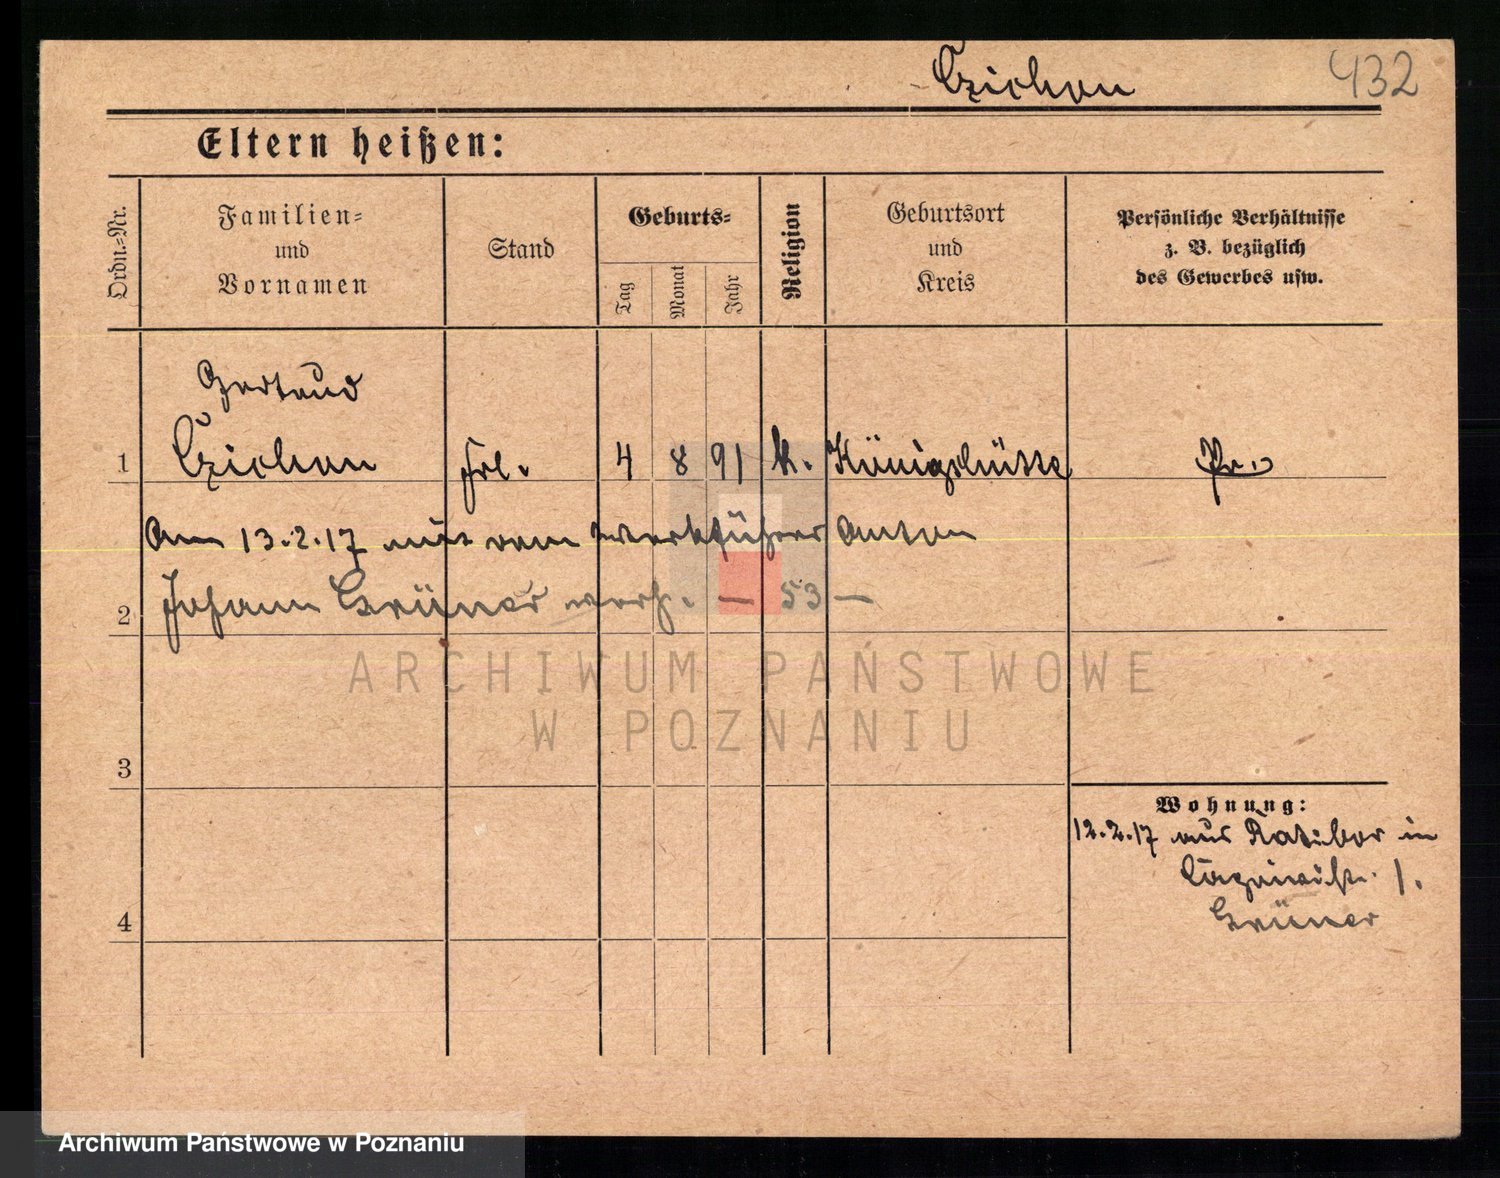 Czichon 432
Eltern heißen:
Ordn.=Nr.
Familien=
und
Vornamen
Stand
Geburts=
Tag
Monat
Jahr
Religion
Geburtsort
und
Kreis
Persönliche Verhältnisse
z. B. bezüglich
des Gewerbes usw.
Gertrud
1 Czichon Frl. 4 8 91 k. Königshütte Pr.
Am 13.2.17 mit dem Werkführer Anton
2 Johann Grüner verh. — 53 —
ARCHIWUM PAŃSTWOWE
W POZNANIU
3
Wohnung:
12.2.17 aus Ratibor in
4 Grüner
Archiwum Państwowe w Poznaniu